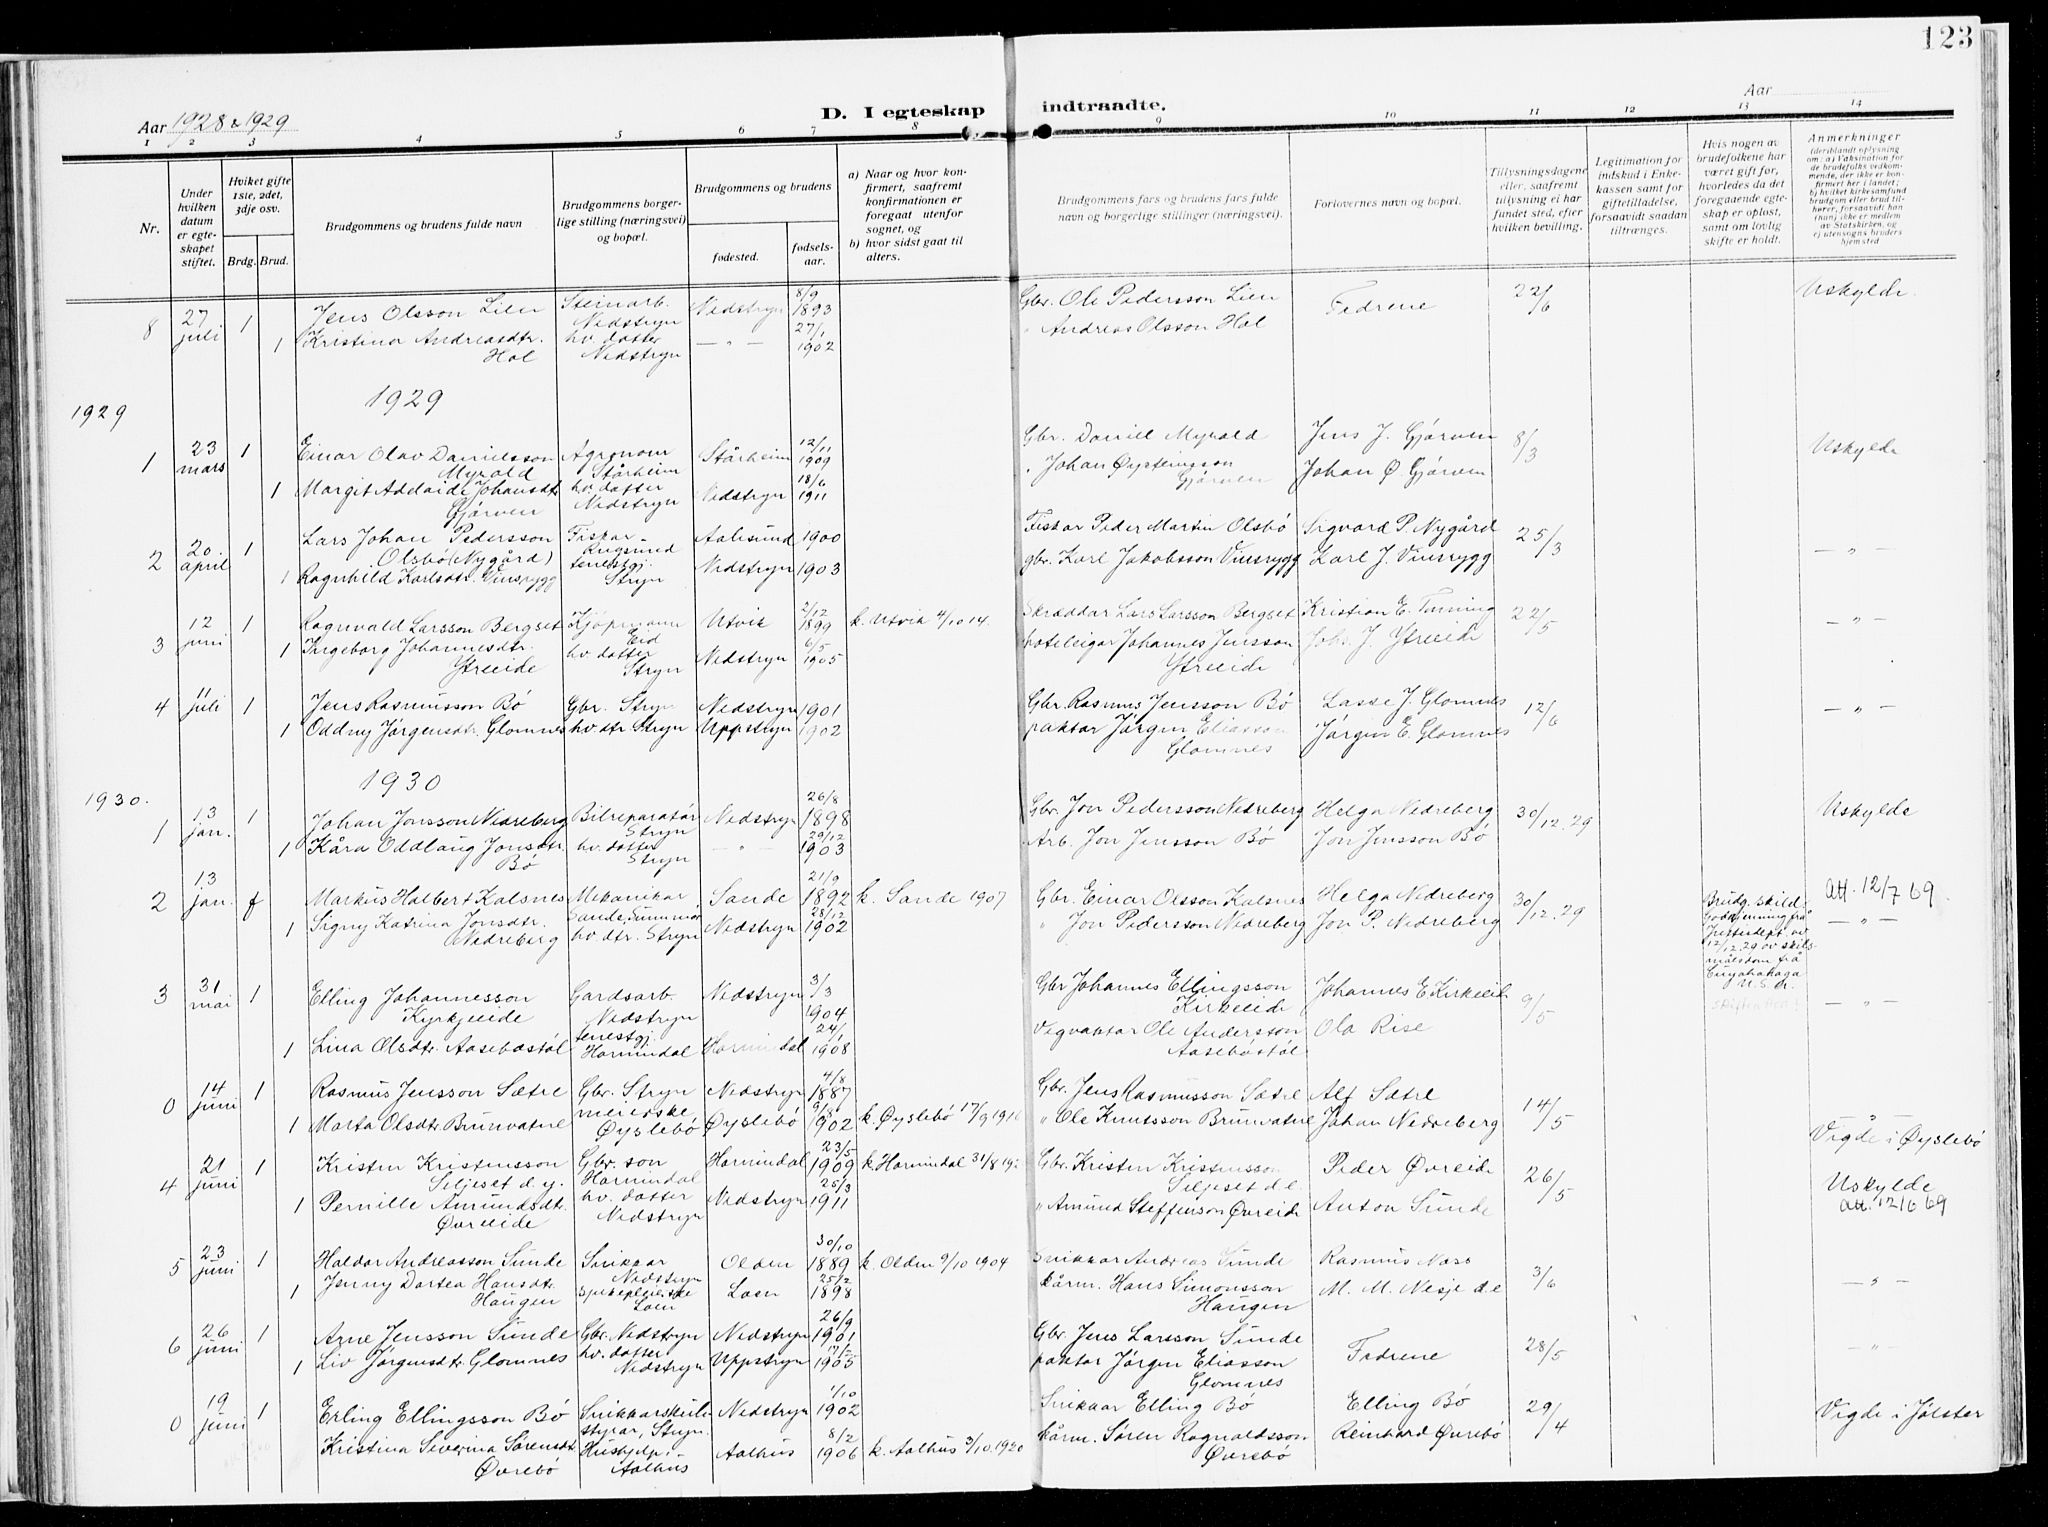 123
Aar 1928 & 1929
D. I egteskap indtraadte.
Aar
1 2 3 4 5 6 7 8 9 10 11 12 13 14
Nr.
Under hvilken datum er egteskapet stiftet.
Hviket gifte 1ste, 2det, 3dje osv.
Brdg. Brud.
Brudgommens og brudens fulde navn
Brudgommens borgerlige stilling (næringsvei) og bopæl.
Brudgommens og brudens
fødested. fødselsaar.
a) Naar og hvor konfirmert, saafremt konfirmationen er foregaat utenfor sognet, og
b) hvor sidst gaat til alters.
Brudgommens fars og brudens fars fulde navn og borgerlige stillinger (næringsvei).
Forlovernes navn og bopæl.
Tillysningsdagene eller, saafremt tillysning ei har fundet sted, efter hvilken bevilling.
Legitimation for indskud i Enkekassen samt for giftetilladelse, forsaavidt saadan tiltrænges.
Hvis nogen av brudefolkene har været gift før, hvorledes da det foregaaende egteskap er opløst, samt om lovlig skifte er holdt.
Anmerkninger (deriblandt oplysning om: a) Vaksination for de brudefolks vedkommende, der ikke er konfirmert her i landet; b) hvilket kirkesamfund brudgom eller brud tilhører, forsaavidt han (hun) ikke er medlem av Statskirken, og c) utensogns bruders hjemsted
8 27 juli 1 Jens Olsson Lien Steinarb. Nedstryn Nedstryn 8/9 1893 Gbr. Ole Pedersson Lien Fedrene 22/6 Uskylde.
1 Kristina Andreasdtr. Hol hv. datter Nedstryn — " — 27/1 1902 " Andreas Olsson Hol
1929
1929
1 23 mars 1 Einar Olav Danielsson Myrold Agronom Stårheim Stårheim 12/11 1909 Gbr. Daniel Myrold Jens J. Gjørven 8/3 Uskylde
1 Margit Adelaide Johansdtr. Gjørven hv. datter Nedstryn Nedstryn 18/6 1911 " Johan Øysteingsson Gjørven Johan Ø. Gjørven
2 20. april 1 Lars Johan Pedersson Olsbø (Nygård) Fiskar - Rugsund Aalesund 1900 Fiskar Peder Martin Olsbø Sigvard P. Nygård 25/3 — " —
1 Ragnhild Karlsdtr. Vinsrygg tenestgj. Stryn Nedstryn 1903 gbr. Karl Jakobsson Vinsrygg Karl J. Vinsrygg
3 12 juni 1 Ragnvald Larsson Bergset Kjøpmann Eid Utvik 2/12 1899 k. Utvik 4/10 14. Skræddar Lars Larsson Bergset Kristian E. Tenning 22/5 — " —
1 Ingeborg Johannesdtr. Ytreeide hv. datter Stryn Nedstryn 6/5 1905 hoteleigar Johannes Jensson Ytreeide Johs. J. Ytreeide
4 11 juli 1 Jens Rasmusson Bø Gbr. Stryn Nedstryn 1901 Gbr. Rasmus Jensson Bø Lasse J. Glomnes 12/6 — " —
1 Oddny Jørgensdtr. Glomnes hv. dtr. Stryn Uppstryn 1902 paktar Jørgen Eliasson Glomnes Jørgen E. Glomnes
1930
1930.
1 13 jan. 1 Johan Jonsson Nedreberg Bilreparatør Stryn Nedstryn 26/8 1898 Gbr. Jon Pedersson Nedreberg Helga Nedreberg 30/12.29 Uskylde
1 Kåra Oddlaug Jonsdtr. Bø hv. datter Stryn — " — 29/12 1903 Arb. Jon Jensson Bø Jon Jensson Bø
2 13 jan. f Markus Halbert Kalsnes Mekanikar Sande, Sunnmør Sande 21/9 1892 k. Sande 1907 Gbr. Einar Olsson Kalsnes Helga Nedreberg 30/12.29 Brudg. skild. Godkjenning frå Justisdept. av 12/12.29 ov skilsmålsdom frå Cuyahahaga U.S.A. Att. 12/7 69
1 Signy Katrina Jonsdtr. Nedreberg hv. dtr. Stryn Nedstryn 28/12 1902 " Jon Pedersson Nedreberg Jon P. Nedreberg — " —
3 31 mai 1 Elling Johannesson Kyrkjeeide Gardsarb. Nedstryn Nedstryn 3/3 1904 Gbr Johannes Ellingsson Kirkeeide Johannes E Kirkeeide 9/5 — " —
1 Lina Olsdtr. Aasebøstøl tenestgj. Hornindal Hornindal 24/1 1908 Vegvaktar Ole Andersson Aasebøstøl Ola Rise
0 14 juni 1 Rasmus Jensson Sætre Gbr. Stryn Nedstryn 4/8 1887 Gbr. Jens Rasmusson Sætre Alf Sætre 14/5 — " —
1 Marta Olsdtr. Brunvatne meierske Øyslebø Øyslebø 9/8 1902 k. Øyslebø 17/9 191 " Ole Knutsson Brunvatne Johan Nedreberg Vigde i Øyslebø
4 21 juni 1 Kristen Kristensson Seljeset d.y. Gbr. son Hornindal Hornindal 23/5 1909 k. Hornindal 31/8 192 Gbr. Kristen Kristensson Seljeset d.e. Peder Øvreide 26/5 Uskylde
1 Pernille Amundsdtr. Øvreeide hv. datter Nedstryn Nedstryn 25/3 1911 " Amund Steffenson Øvreide Anton Sunde Att. 12/6 69
5 23 juni 1 Haldor Andreasson Sunde Snikkar Nedstryn Olden 30/10 1889 k. Olden 9/10 1904 Snikkar Andreas Sunde Rasmus Noss 3/6 — " —
1 Jenny Dortea Hansdtr. Haugen sjukepleierske Loen Loen 25/2 1898 kårm. Hans Simonsson Haugen M. M. Nesje d.e
6 26 juni 1 Arne Jensson Sunde Gbr. Nedstryn Nedstryn 26/9 1901 Gbr. Jens Larsson Sunde Fedrene 28/5 — " —
1 Liv Jørgensdtr. Glomnes hv. datter Nedstryn Uppstryn 17/2 1905 paktar Jørgen Eliasson Glomnes
0 19 juni 1 Erling Ellingsson Bø Snikkarskulestyrar, Stryn. Nedstryn 1/10 1902 Snikkar Elling Bø Elling Bø 29/4 Vigde i Jølster
Kristina Severina Sørensdtr. Øvrebø Hushjelp, Aalhus Aalhus 8/2 1906 k. Aalhus 3/10.1920 kårm. Søren Ragnaldsson Øvrebø Reinhard Øvrebø